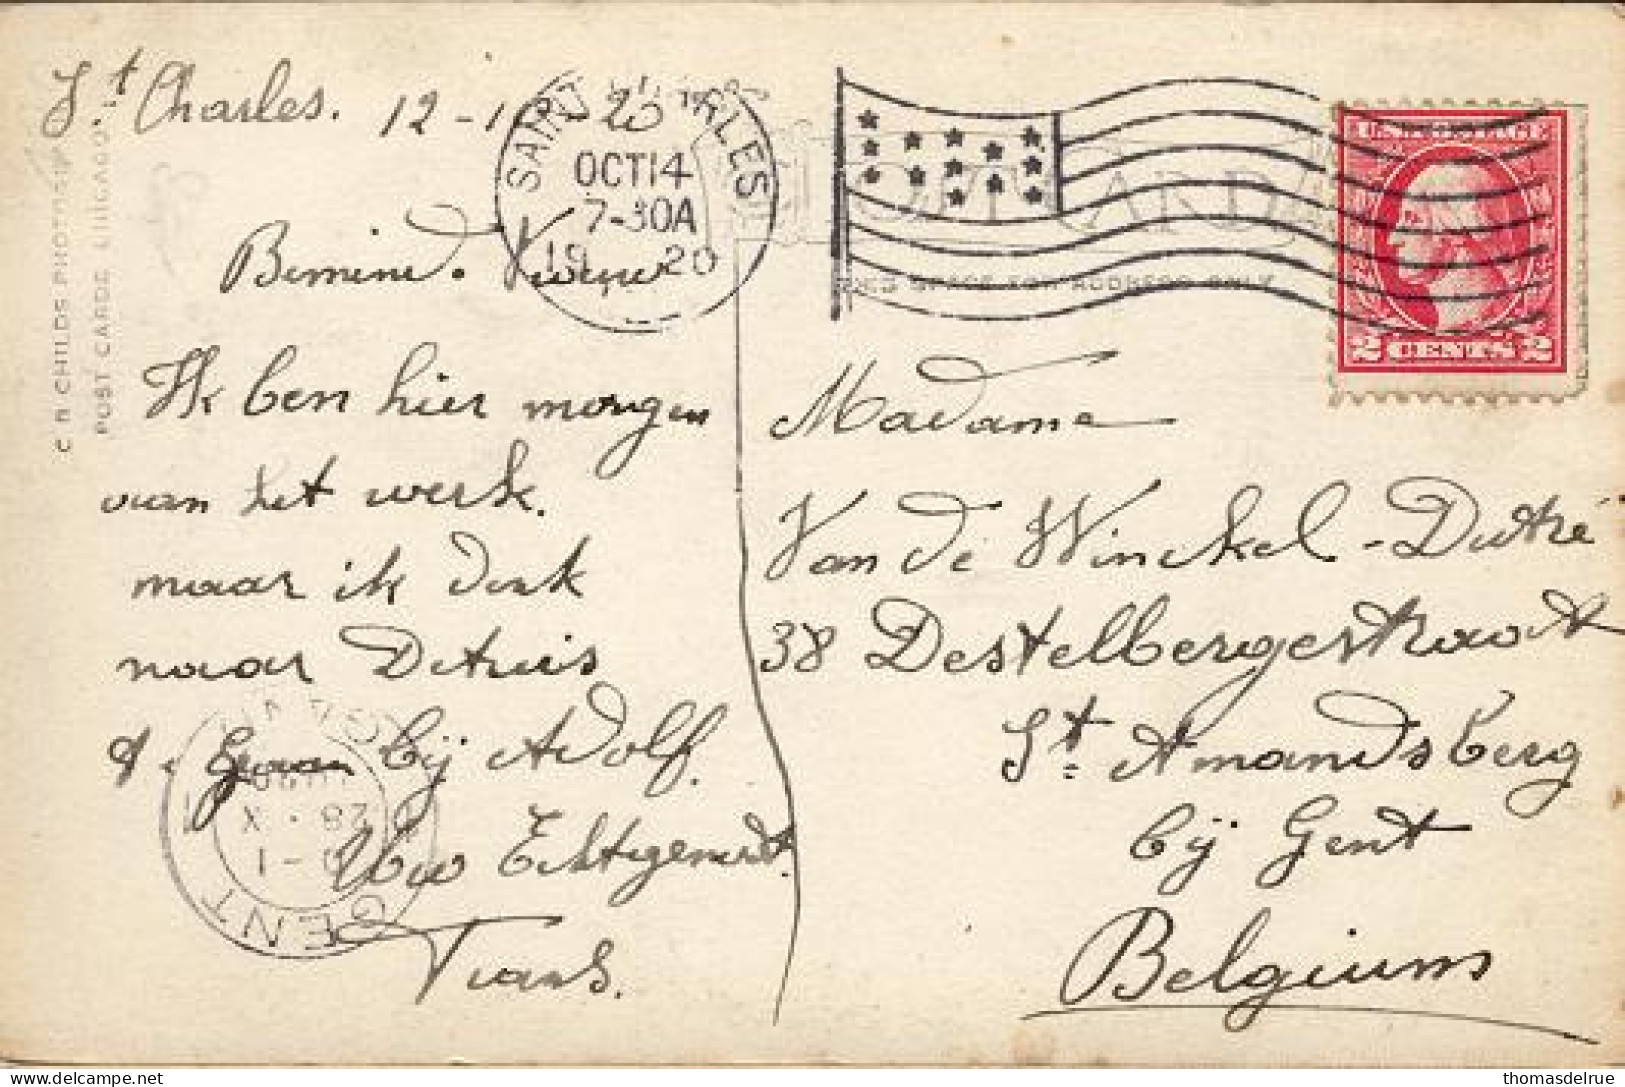 St Charles. 12-10-20
SAINT CHARLES
OCT 14
7-30A
1920
U.S. POSTAGE
2 CENTS 2
POST CARD
THIS SPACE FOR ADDRESS ONLY
C R CHILDS PHOTOGRAPHER
POST CARDS CHICAGO
Beminde Vrouw
Ik ben hier morgen
van het werk.
maar ik denk
naar Detruis
te gaan bij Adolf.
Uw Echtgenoot
Frans.
GENT
28 · X
GENT
Madame
Van de Winckel-Dutré
38 Destelbergestraat
St. Amandsberg
bij Gent
Belgium
Delcampe.net
thomasdelrue